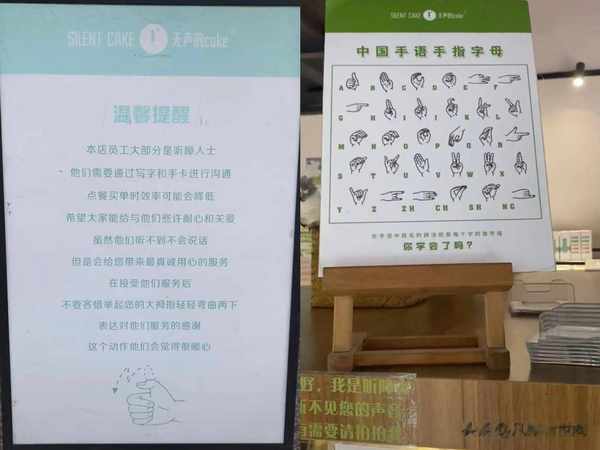 SILENT CAKE 无声的cake
温馨提醒
本店员工大部分是听障人士
他们需要通过写字和手卡进行沟通
点餐买单时效率可能会降低
希望大家能给与他们些许耐心和关爱
虽然他们听不到不会说话
但是会给您带来最真诚用心的服务
在接受他们服务后
不要吝惜举起您的大拇指轻轻弯曲两下
表达对他们服务的感谢
这个动作他们会觉得很暖心
SILENT CAKE 无声的cake
中国手语手指字母
A B C D E F
G H I J K L
M N O P Q R
S T U V W X
Y Z ZH CH SH NG
你学会了吗？
好，我是听障
听不见您的声音
有需要请拍拍我